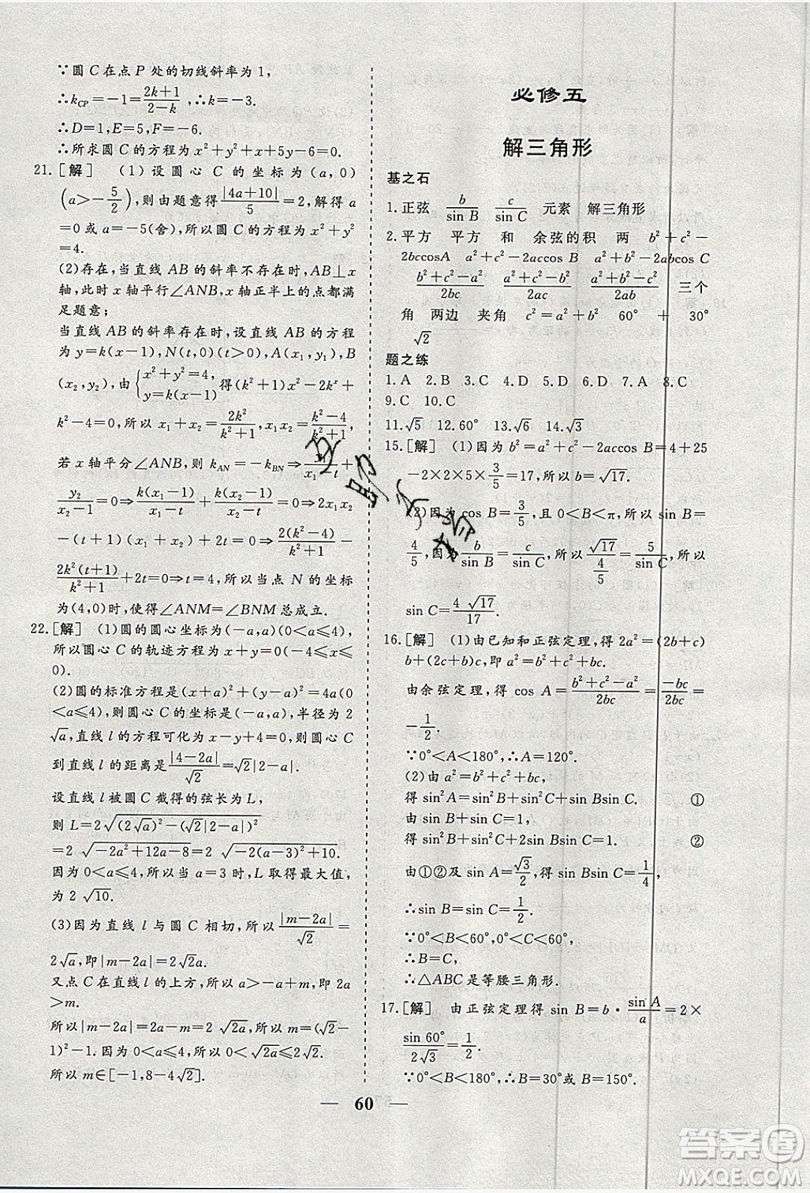 ∵圆 C 在点 P 处的切线斜率为 1，
∴k_CP=-1=(2k+1)/(2-k)  ∴k=-3.
∴D=1,E=5,F=-6.
∴所求圆 C 的方程为 x²+y²+x+5y-6=0.
21.[解]  (1)设圆心 C 的坐标为(a,0)
(a>-5/2),则由题意得|4a+10|/5=2,解得 a
=0 或 a=-5(舍),所以圆 C 的方程为 x²+y²
=4.
(2)存在,当直线 AB 的斜率不存在时,AB⊥x
轴,此时 x 轴平行∠ANB,x 轴上所有点都满
足题意;
当直线 AB 的斜率存在时,设直线 AB 的方程
为 y=k(x-1),N(t,0)(t>0),A(x₁,y₁),B
(x₂,y₂),由{x²+y²=4, y=k(x-1) 得(k²+1)x²-2k²x+
k²-4=0,所以 x₁+x₂=2k²/(k²+1),x₁x₂=(k²-4)/(k²+1).
若 x 轴平分∠ANB,则 k_AN=-k_BN⇒y₁/(x₁-t)+
y₂/(x₂-t)=0⇒k(x₁-1)/(x₁-t)+k(x₂-1)/(x₂-t)=0⇒2x₁x₂
-(t+1)(x₁+x₂)+2t=0⇒2(k²-4)/(k²+1)-
2k²(t+1)/(k²+1)+2t=0⇒t=4,所以当点 N 的坐标
为(4,0)时,使得∠ANM=∠BNM总成立.
22.[解]  (1)圆的圆心坐标为(-a,a)(0<a≤
4),圆心 C 的轨迹方程为 x+y=0(-4≤x<
0).
(2)圆的标准方程是(x+a)²+(y-a)²=4a(0
<a≤4),则圆心 C 的坐标是(-a,a),半径为 2
√a,直线 l 的方程可化为 x-y+4=0,则圆心 C
到直线 l 的距离是|4-2a|/√2=√2|2-a|.
设直线 l 被圆 C 截得的弦长为 L,
则 L=2√((2√a)²-(√2|2-a|)²)
=2 √(-2a²+12a-8)=2√(-2(a-3)²+10).
因为 0<a≤4,所以当 a=3 时,L 取得最大值,
为 2 √10.
(3)因为直线 l 与圆 C 相切,所以|m-2a|/√2=
2√a,即|m-2a|=2 √2a.
又点 C 在直线 l 的上方,所以 a>-a+m,即 2a
>m.
所以|m-2a|=2a-m=2 √2a,所以 m=(√2a-
1)²-1.因为 0<a≤4,所以 0<√2a≤2√2.
所以 m∈[-1,8-4√2].
必修五
解三角形
基之石
1.正弦  b/sin B  c/sin C  元素  解三角形
2.平方  平方  和  余弦的积  两  b²+c²-
2bccosA  a²+c²-2accosB  a²+b²-2abcos C
(b²+c²-a²)/2bc  (a²+c²-b²)/2ac  (a²+b²-c²)/2ab  三个
角  两边  夹角  c²=a²+b²  60°  +  30°
√2
题之练
1.A  2.B  3.C  4.C  5.A  6.C  7.A  8.C
9.C  10.C
11.√5  12.60°  13.√6  14.√3
15.[解]  (1)因为 b²=a²+c²-2accos B=4+25
-2×2×5×3/5=17,所以 b=√17.
(2)因为 cos B=3/5,且 0<B<π,所以 sin B=
4/5,因为 b/sin B=c/sin C,所以 √17/(4/5)=5/sin C,所以
sin C=4 √17/17.
16.[解]  (1)由已知和正弦定理,得 2a²=(2b+c)
b+(2c+b)c,即 a²=b²+c²+bc.
由余弦定理,得 cos A=(b²+c²-a²)/2bc=-bc/2bc=
-1/2.
∵0°<A<180°,∴A=120°.
(2)由(1)a²=b²+c²+bc,
得 sin²A=sin²B+sin²C+sin Bsin C.  ①
由 sin B+sin C=1,
得 sin²B+sin²C+2sin Bsin C=1.  ②
由①②及 sin A=√3/2,得 sin Bsin C=1/4,
∴sin B=sin C=1/2.
∵0°<B<60°,0°<C<60°,
∴B=C,
∴△ABC是等腰三角形.
17.[解]  由正弦定理得 sin B=b·sin A/a=2×
sin 60°/2√3=1/2.
∵0°<B<180°,∴B=30°或 B=150°.
— 60 —
互助文档
答案圈
MXQE.COM